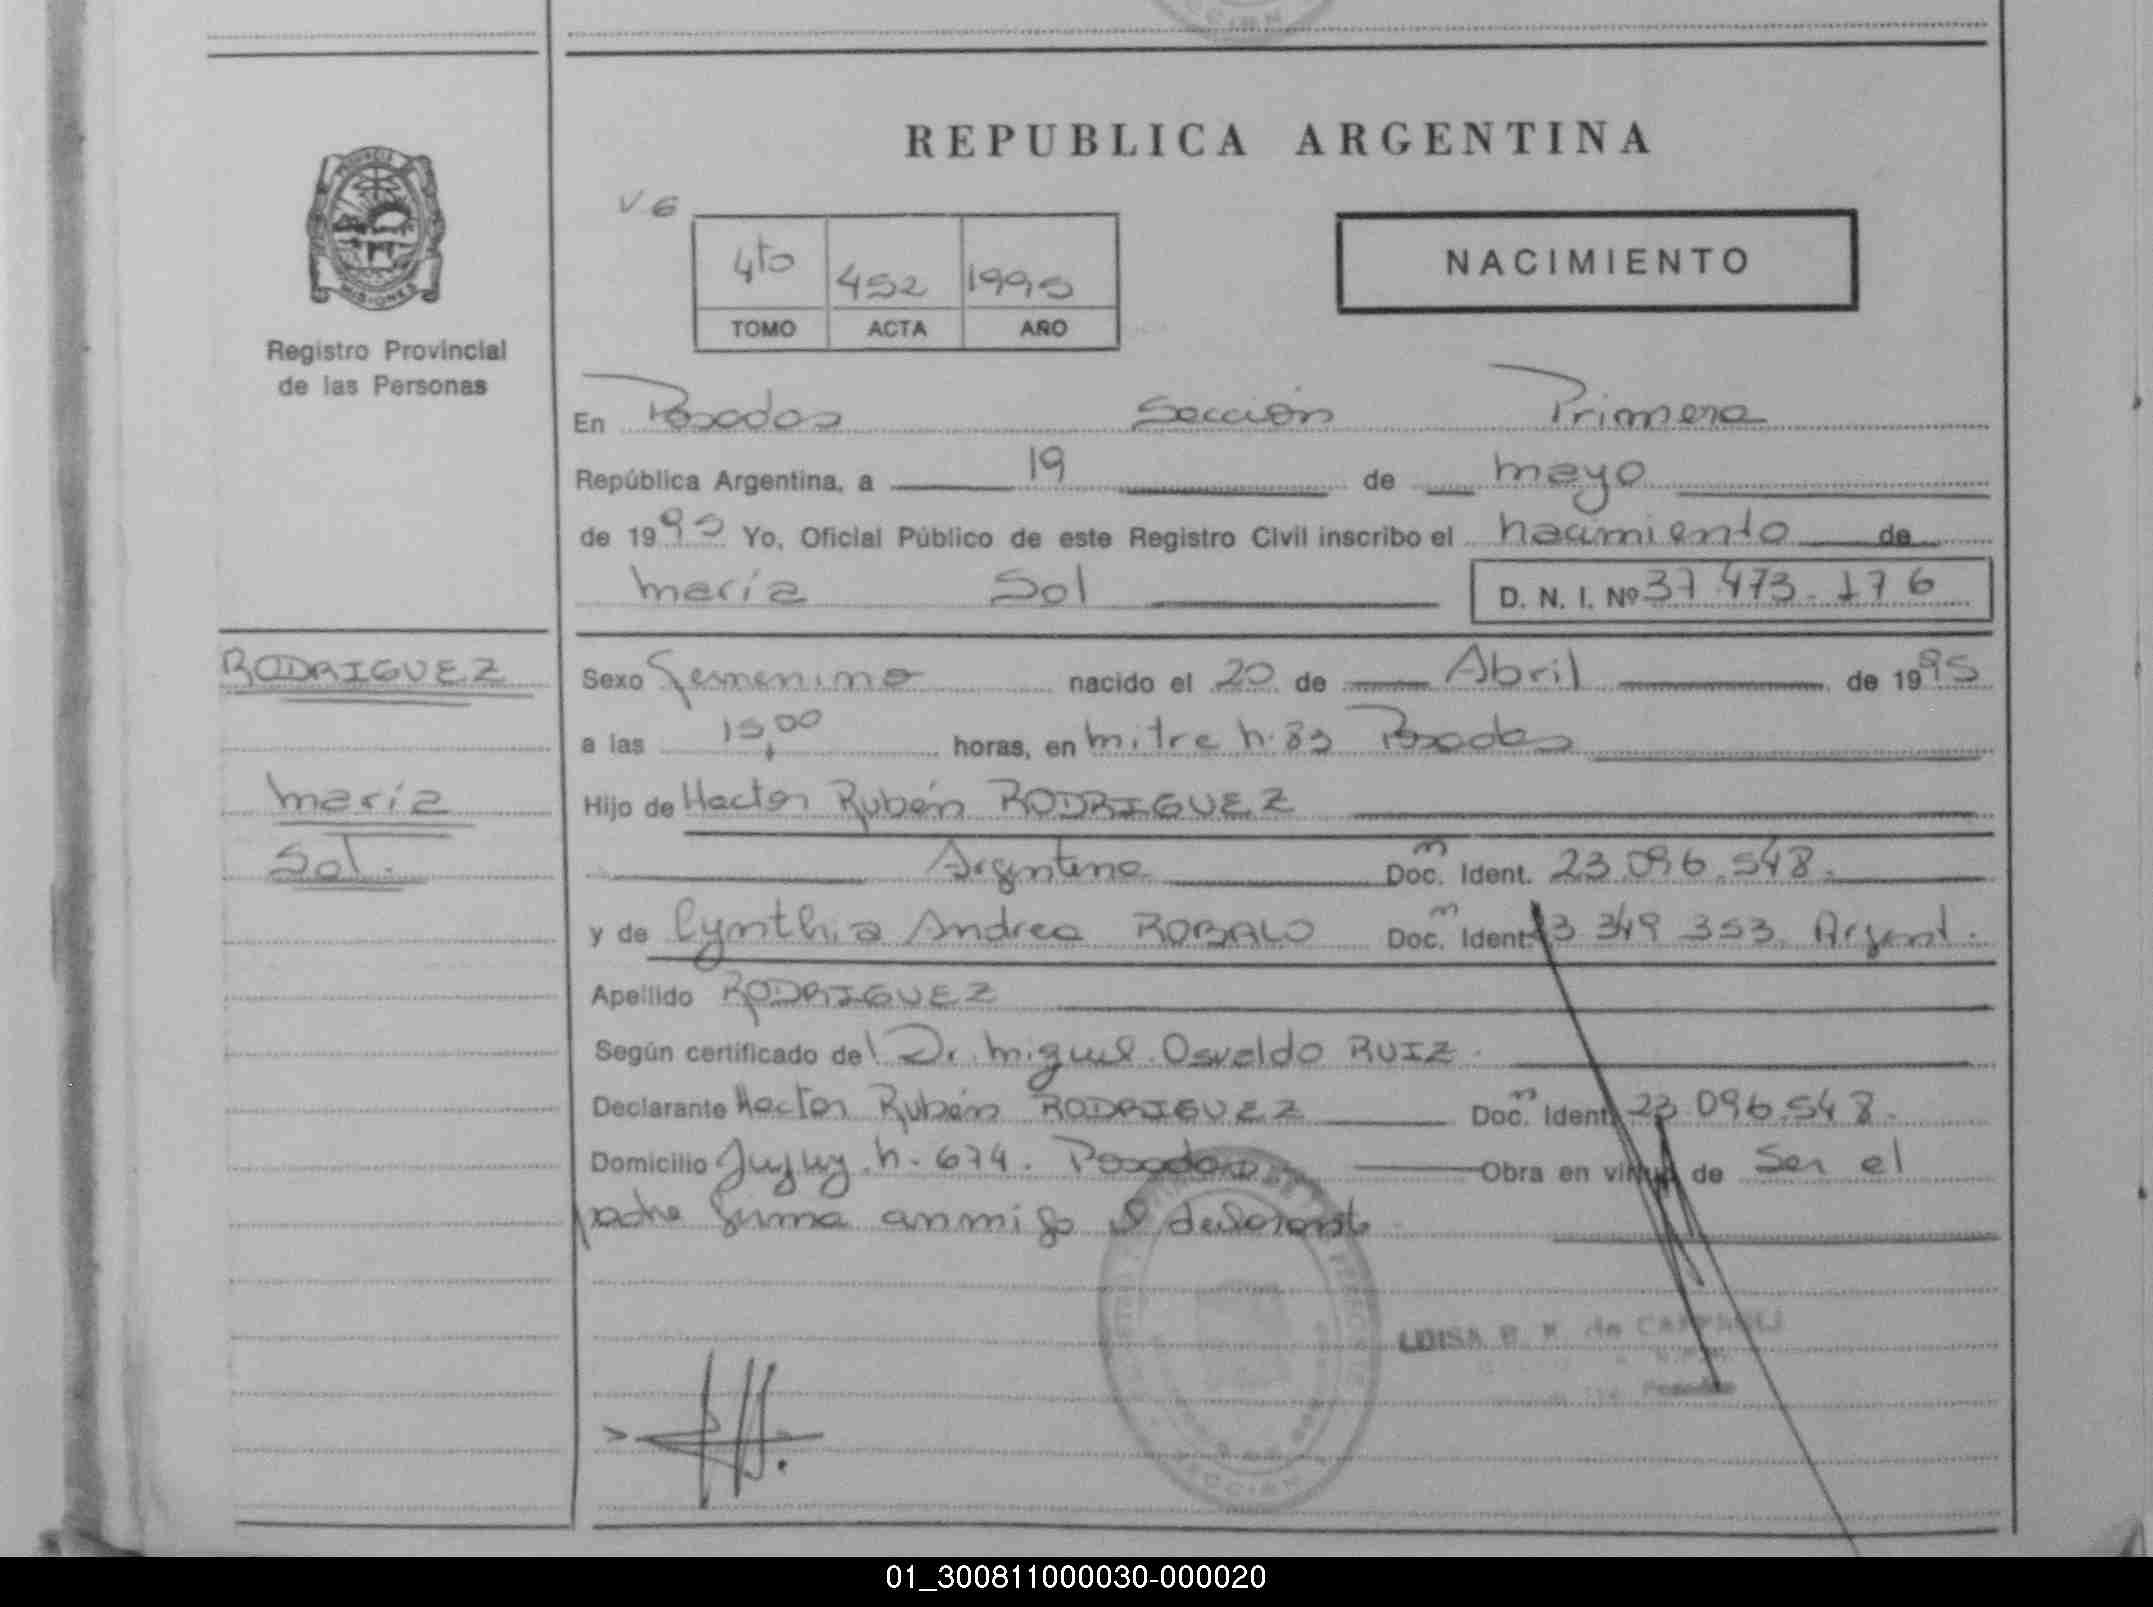 REPUBLICA ARGENTINA
MISIONES
Registro Provincial
de las Personas
V 6
4to 452 1995
TOMO ACTA AÑO
NACIMIENTO
En Posadas Sección Primera
República Argentina, a 19 de mayo
de 1995 Yo, Oficial Público de este Registro Civil inscribo el nacimiento de
María Sol D. N. I. Nº 37 473.176
RODRIGUEZ
María
Sol.
Sexo Femenino nacido el 20 de Abril de 1995
a las 15,00 horas, en Mitre n. 83 Posadas
Hijo de Hector Rubén RODRIGUEZ
Argentino Doc. Ident. 23.096.548.
y de Cynthia Andrea ROBALO Doc. Ident. 3 349 353. Argent.
Apellido RODRIGUEZ
Según certificado del Dr. Miguel Osvaldo RUIZ.
Declarante Hector Rubén RODRIGUEZ Doc. Ident. 23 096.548.
Domicilio Jujuy n. 674. Posadas Obra en virtud de Ser el
padre firma conmigo el declarante
LUISA
Posadas
SECCION
01_300811000030-000020